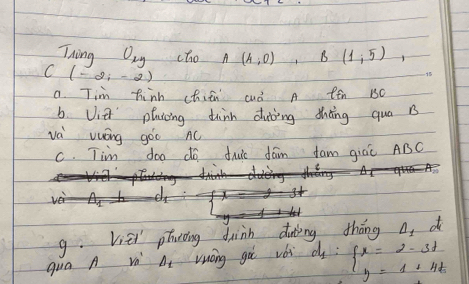 Trong Oxy cho A (4,0) , B (1,5) ,
C (-2, -2)
a. Tìm hình chiếu của A lên BC
b. Viết phương trình đường thẳng qua B
và vuông góc AC
c. Tìm tọa độ trực tâm tam giác ABC
Viết phương trình đường thẳng Δ₁ qua A
và Δ₁ d₁ : { x = 2 - 3t
y = 1 + 4t
g. Viết phương trình đường thẳng Δ₁ đi
qua A và Δ₁ vuông góc với d₁ : { x = 2 - 3t
y = 1 + 4t